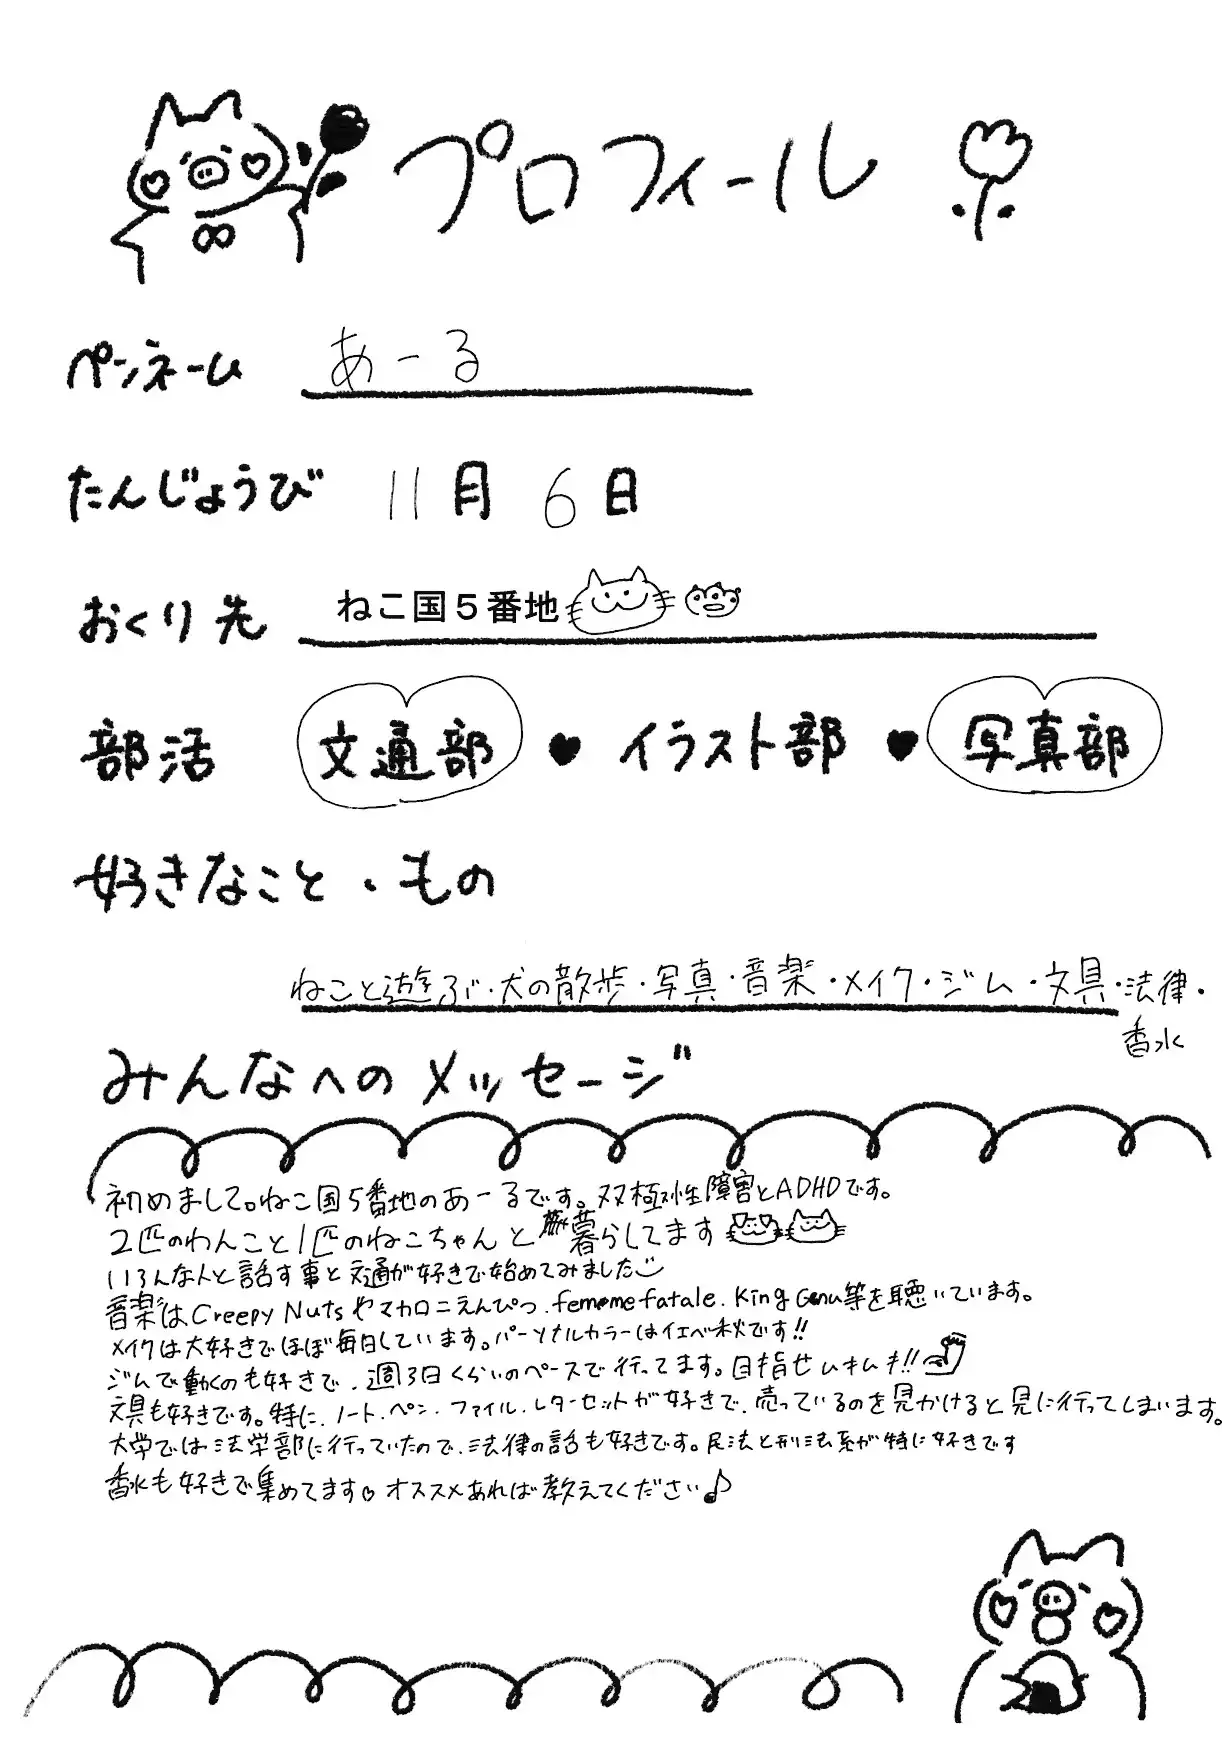 プロフィール
ペンネーム あーる
たんじょうび 11月 6日
おくり先 ねこ国5番地
部活 文通部 ♥ イラスト部 ♥ 写真部
好きなこと・もの
ねこと遊ぶ・犬の散歩・写真・音楽・メイク・ジム・文具・法律・
香水
みんなへのメッセージ
初めまして。ねこ国5番地のあーるです。双極性障害とADHDです。
2匹のわんこと1匹のねこちゃんと暮らしてます
いろんな人と話す事と文通が好きで始めてみました
音楽はCreepy Nutsやマカロニえんぴつ.femme fatale.King Gnu等を聴いています。
メイクは大好きでほぼ毎日しています。パーソナルカラーはイエベ秋です!!
ジムで動くのも好きで、週3日くらいのペースで行ってます。目指せムキムキ!!
文具も好きです。特に、ノート.ペン.ファイル.レターセットが好きで、売っているのを見かけると見に行ってしまいます。
大学では法学部に行っていたので、法律の話も好きです。民法と刑法系が特に好きです
香水も好きで集めてます♡オススメあれば教えてください♪